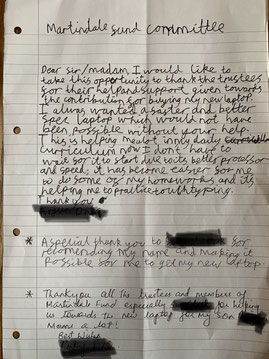 Martindale fund committee
Dear sir/madam I would like to
take this opportunity to thank the trustees
for their help and support given towards
the contribution for buying my new laptop.
I always wanted a faster and better
spec laptop which would not have
been possible without your help.
This is helping me a lot in my daily
curriculum now I don't have to
wait for it to start due to its better processor
and speed; it has become easier for me
to do some of my homeworks and its
helping me to practice touchtyping.
Thank you
* A special thank you to for
recomending my name and making it
possible for me to get my new laptop
* Thankyou all the trustees and members of
Martindale Fund especially for helping
us towards the new laptop for my son
Means a lot!
Best Wishes